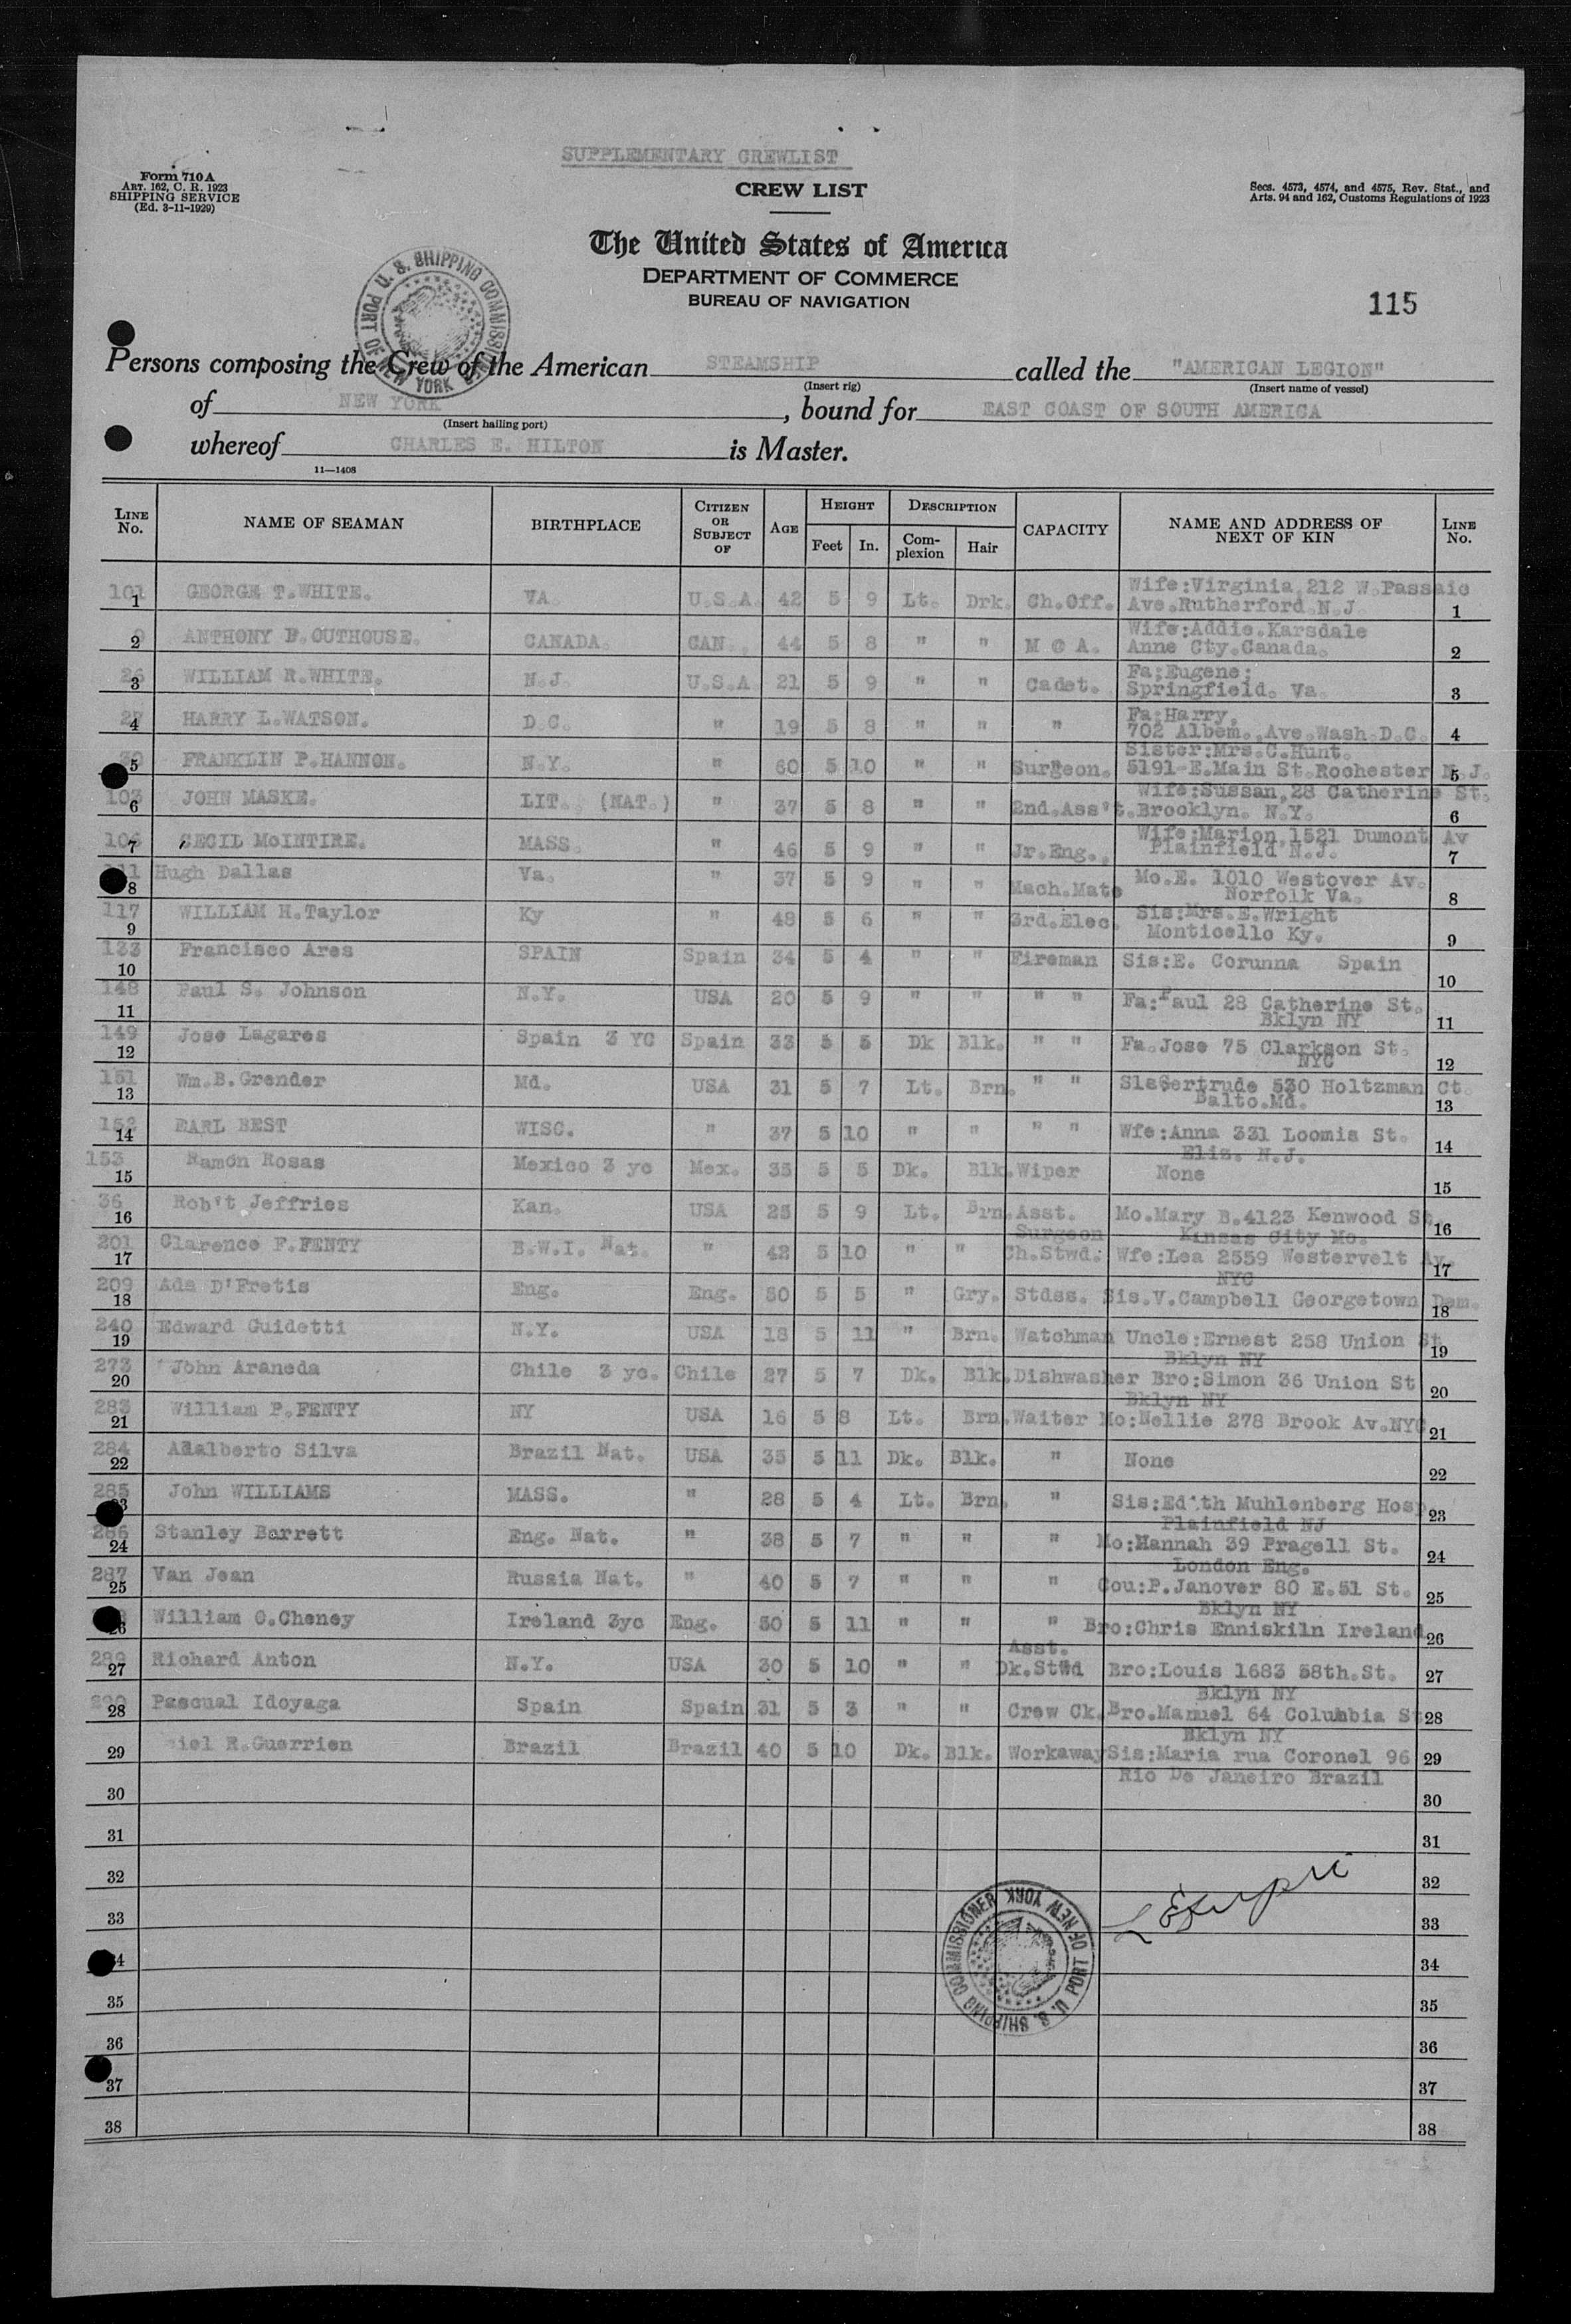 SUPPLEMENTARY CREWLIST
Form 710A
ART. 162, C. R. 1923
SHIPPING SERVICE
(Ed. 3-11-1929)
CREW LIST
Secs. 4573, 4574, and 4575, Rev. Stat., and
Arts. 94 and 162, Customs Regulations of 1923
The United States of America
DEPARTMENT OF COMMERCE
BUREAU OF NAVIGATION
115
U. S. SHIPPING COMMISSI PORT OF NEW YORK
Persons composing the Crew of the American STEAMSHIP called the "AMERICAN LEGION"
(Insert rig) (Insert name of vessel)
of NEW YORK, bound for EAST COAST OF SOUTH AMERICA
(Insert hailing port)
whereof CHARLES E. HILTON is Master.
11—1408
LINE No. NAME OF SEAMAN. BIRTHPLACE CITIZEN OR SUBJECT OF AGE HEIGHT Feet In. DESCRIPTION Com-plexion Hair CAPACITY NAME AND ADDRESS OF NEXT OF KIN LINE No.
101 1 GEORGE T.WHITE. VA. U.S.A. 42 5 9 Lt. Drk. Ch.Off. Wife:Virginia,212 W.Passaic Ave.Rutherford.N.J. 1
2 ANTHONY F.OUTHOUSE. CANADA. CAN. 44 5 8 " " M @ A. Wife:Addie.Karsdale Anne Cty.Canada. 2
26 3 WILLIAM R.WHITE. N.J. U.S.A. 21 5 9 " " Cadet. Fa;Eugene; Springfield. Va. 3
27 4 HARRY L.WATSON. D.C. " 19 5 8 " " " Fa:Harry, 702 Albem.,Ave.Wash.D.C. 4
5 FRANKLIN P.HANNON. N.Y. " 60 5 10 " " Surgeon. Sister:Mrs.C.Hunt. 5191-E.Main St.Rochester N.J. 5
103 6 JOHN MASKE. LIT. (NAT.) " 37 5 8 " " 2nd.Ass't. Wife:Sussan,28 Catherine St. Brooklyn. N.Y. 6
106 7 CECIL McINTIRE. MASS. " 46 5 9 " " Jr.Eng.. Wife:Marion,1521 Dumont Av Plainfield N.J. 7
8 Hugh Dallas Va. " 37 5 9 " " Mach.Mate Mo.E. 1010 Westover Av. Norfolk Va. 8
117 9 WILLIAM H.Taylor Ky " 48 5 6 " " 3rd.Elec. Sis:Mrs.E.Wright Monticello Ky. 9
133 10 Francisco Ares SPAIN Spain 34 5 4 " " Fireman Sis:E. Corunna Spain 10
148 11 Paul S. Johnson N.Y. USA 20 5 9 " " " " Fa:Paul 28 Catherine St. Bklyn NY 11
149 12 Jose Lagares Spain 3 YC Spain 33 5 5 Dk Blk. " " Fa.Jose 75 Clarkson St. NYC 12
151 13 Wm.B.Grender Md. USA 31 5 7 Lt. Brn. " " SisGertrude 530 Holtzman Ct. Balto.Md. 13
152 14 EARL BEST WISC. " 37 5 10 " " " " Wfe:Anna 331 Loomis St. Eliz. N.J. 14
153 15 Ramon Rosas Mexico 3 yc Mex. 35 5 5 Dk. Blk. Wiper None 15
36 16 Rob't Jeffries Kan. USA 25 5 9 Lt. Brn. Asst. Surgeon Mo.Mary B.4123 Kenwood St. Kinsas City Mo. 16
201 17 Clarence F.FENTY B.W.I. Nat. " 42 5 10 " " Ch.Stwd. Wfe:Lea 2559 Westervelt Av. NYC 17
209 18 Ada D'Fretis Eng. Eng. 50 5 5 " Gry. Stdss. Sis.V.Campbell Georgetown Dem. 18
240 19 Edward Guidetti N.Y. USA 18 5 11 " Brn. Watchman Uncle:Ernest 258 Union St Bklyn NY 19
273 20 John Araneda Chile 3 yc. Chile 27 5 7 Dk. Blk. Dishwasher Bro:Simon 36 Union St Bklyn NY 20
283 21 William P.FENTY NY USA 16 5 8 Lt. Brn. Waiter Mo:Nellie 278 Brook Av.NYC 21
284 22 Adalberto Silva Brazil Nat. USA 35 5 11 Dk. Blk. " None 22
285 23 John WILLIAMS MASS. " 28 5 4 Lt. Brn. " Sis:Edith Muhlenberg Hosp Plainfield NJ 23
286 24 Stanley Barrett Eng. Nat. " 38 5 7 " " " Mo:Hannah 39 Fragell St. London Eng. 24
287 25 Van Jean Russia Nat. " 40 5 7 " " " Cou:P.Janover 80 E.51 St. Bklyn NY 25
26 William O.Cheney Ireland 3yc Eng. 50 5 11 " " " Bro:Chris Enniskiln Ireland 26
289 27 Richard Anton N.Y. USA 30 5 10 " " Asst. Dk.Stwd Bro:Louis 1683 58th.St. Bklyn NY 27
28 Pascual Idoyaga Spain Spain 31 5 3 " " Crew Ck. Bro.Manuel 64 Columbia St Bklyn NY 28
29 R.Guerrien Brazil Brazil 40 5 10 Dk. Blk. Workaway Sis:Maria rua Coronel 96 Rio De Janeiro Brazil 29
30 30
31 31
32 32
33 33
34 34
35 35
36 36
37 37
38 38
U. S. SHIPPING COMMISSIONER PORT OF NEW YORK